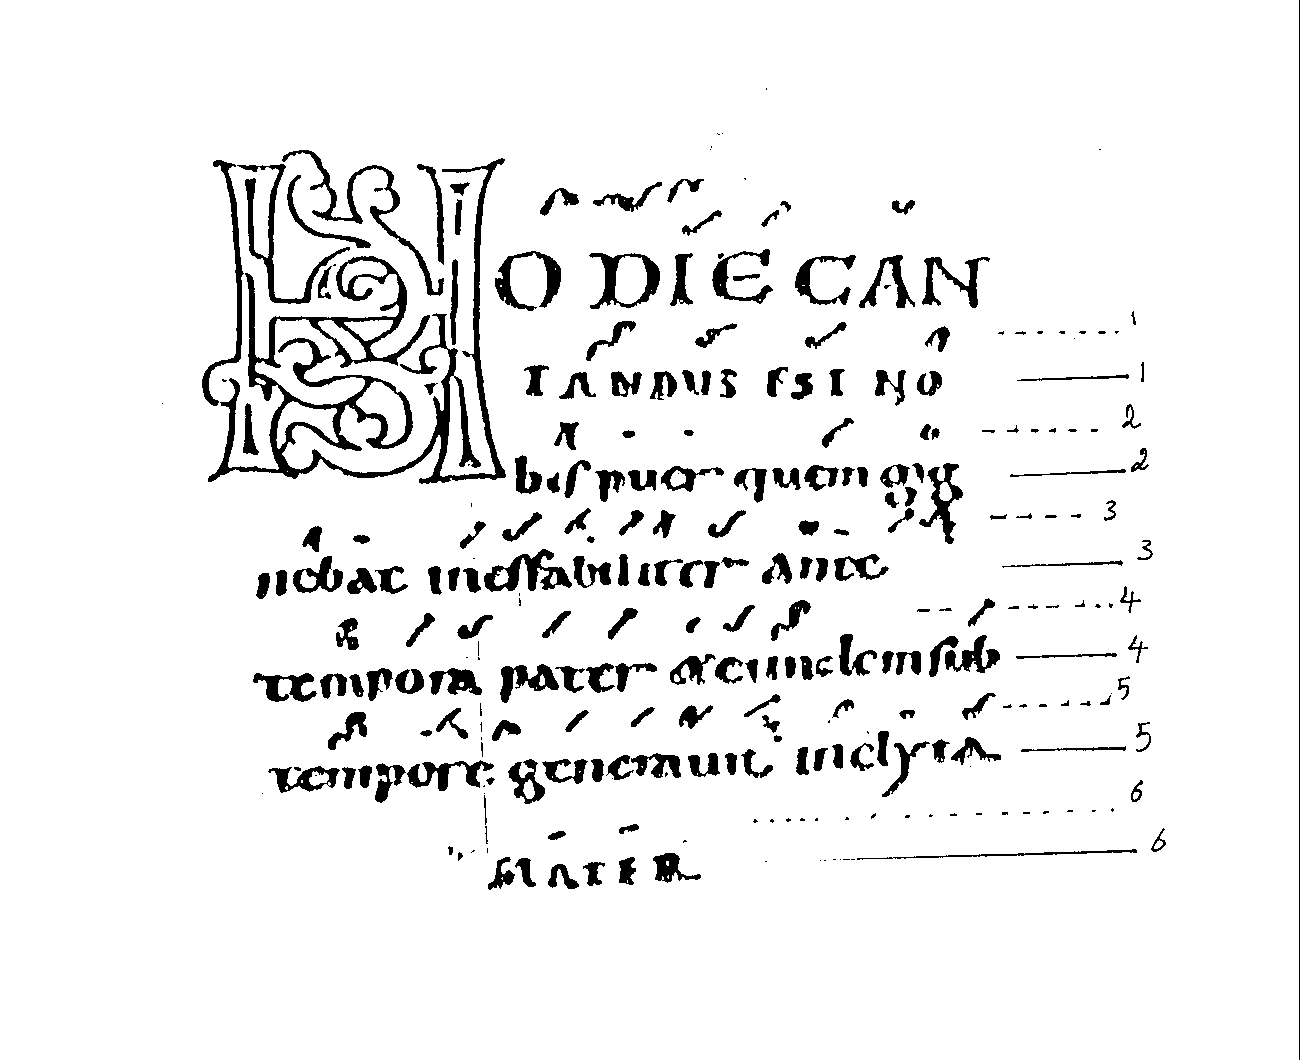 HODIE CAN
1
TANDUS EST NO 1
2
bis puer quem gig 2
3
nebat ineffabiliter ante 3
4
tempora pater & eundem sub 4
5
tempore generavit inclyta 5
6
MATER 6